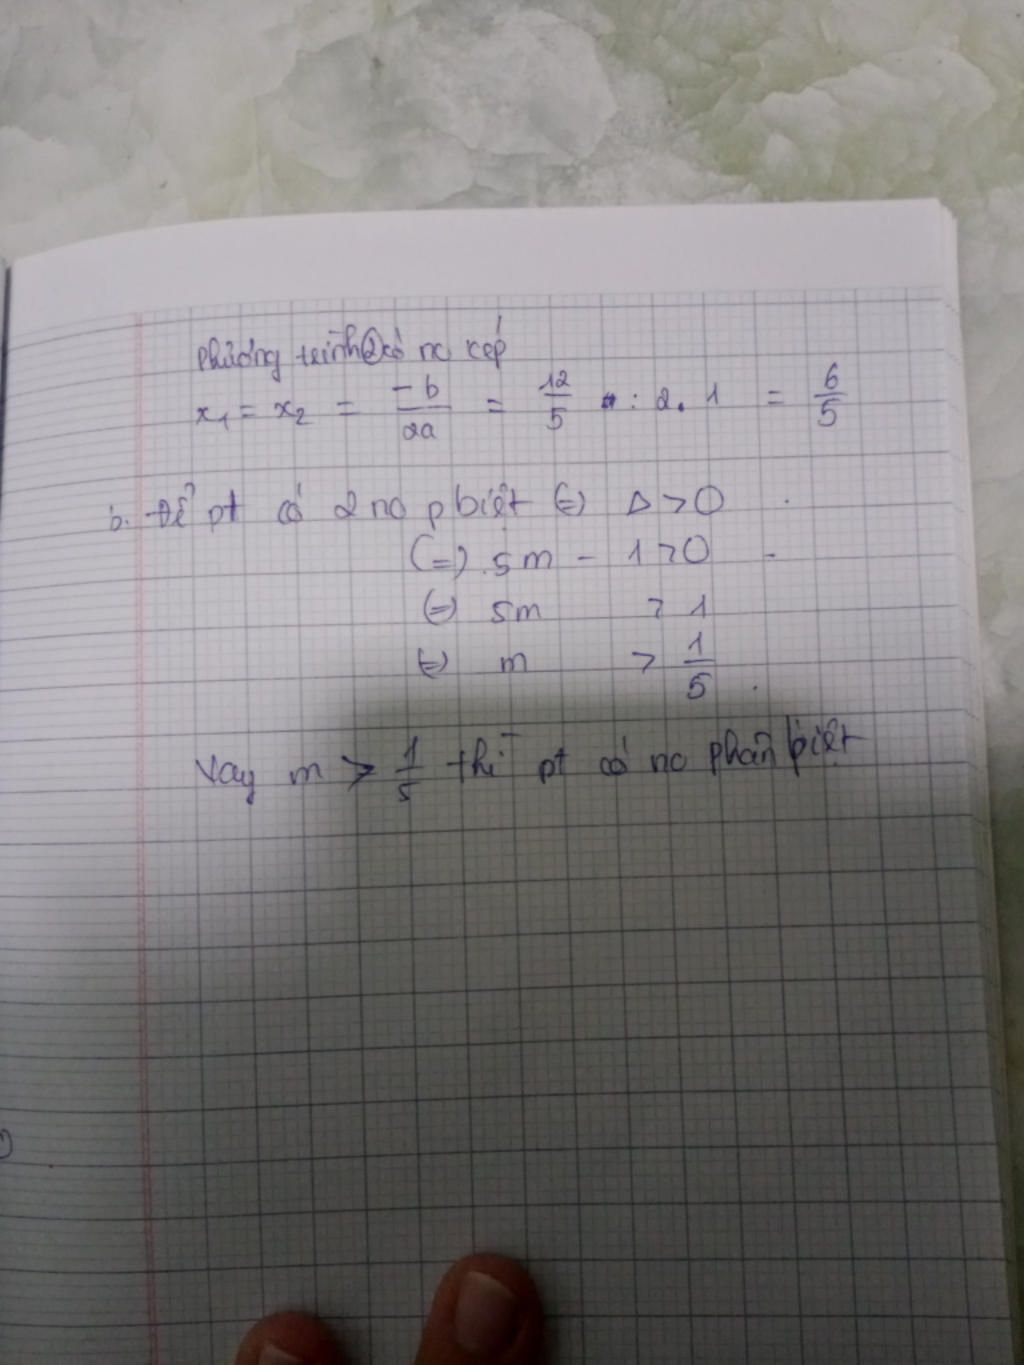 Phương trình ② có no kép
x₁ = x₂ = -b/2a = 12/5 : 2.1 = 6/5
b. Để pt có 2 no pbiệt (=) Δ > 0
(=) 5m - 1 > 0
(=) 5m > 1
(=) m > 1/5
Vay m > 1/5 thì pt có no phân biệt